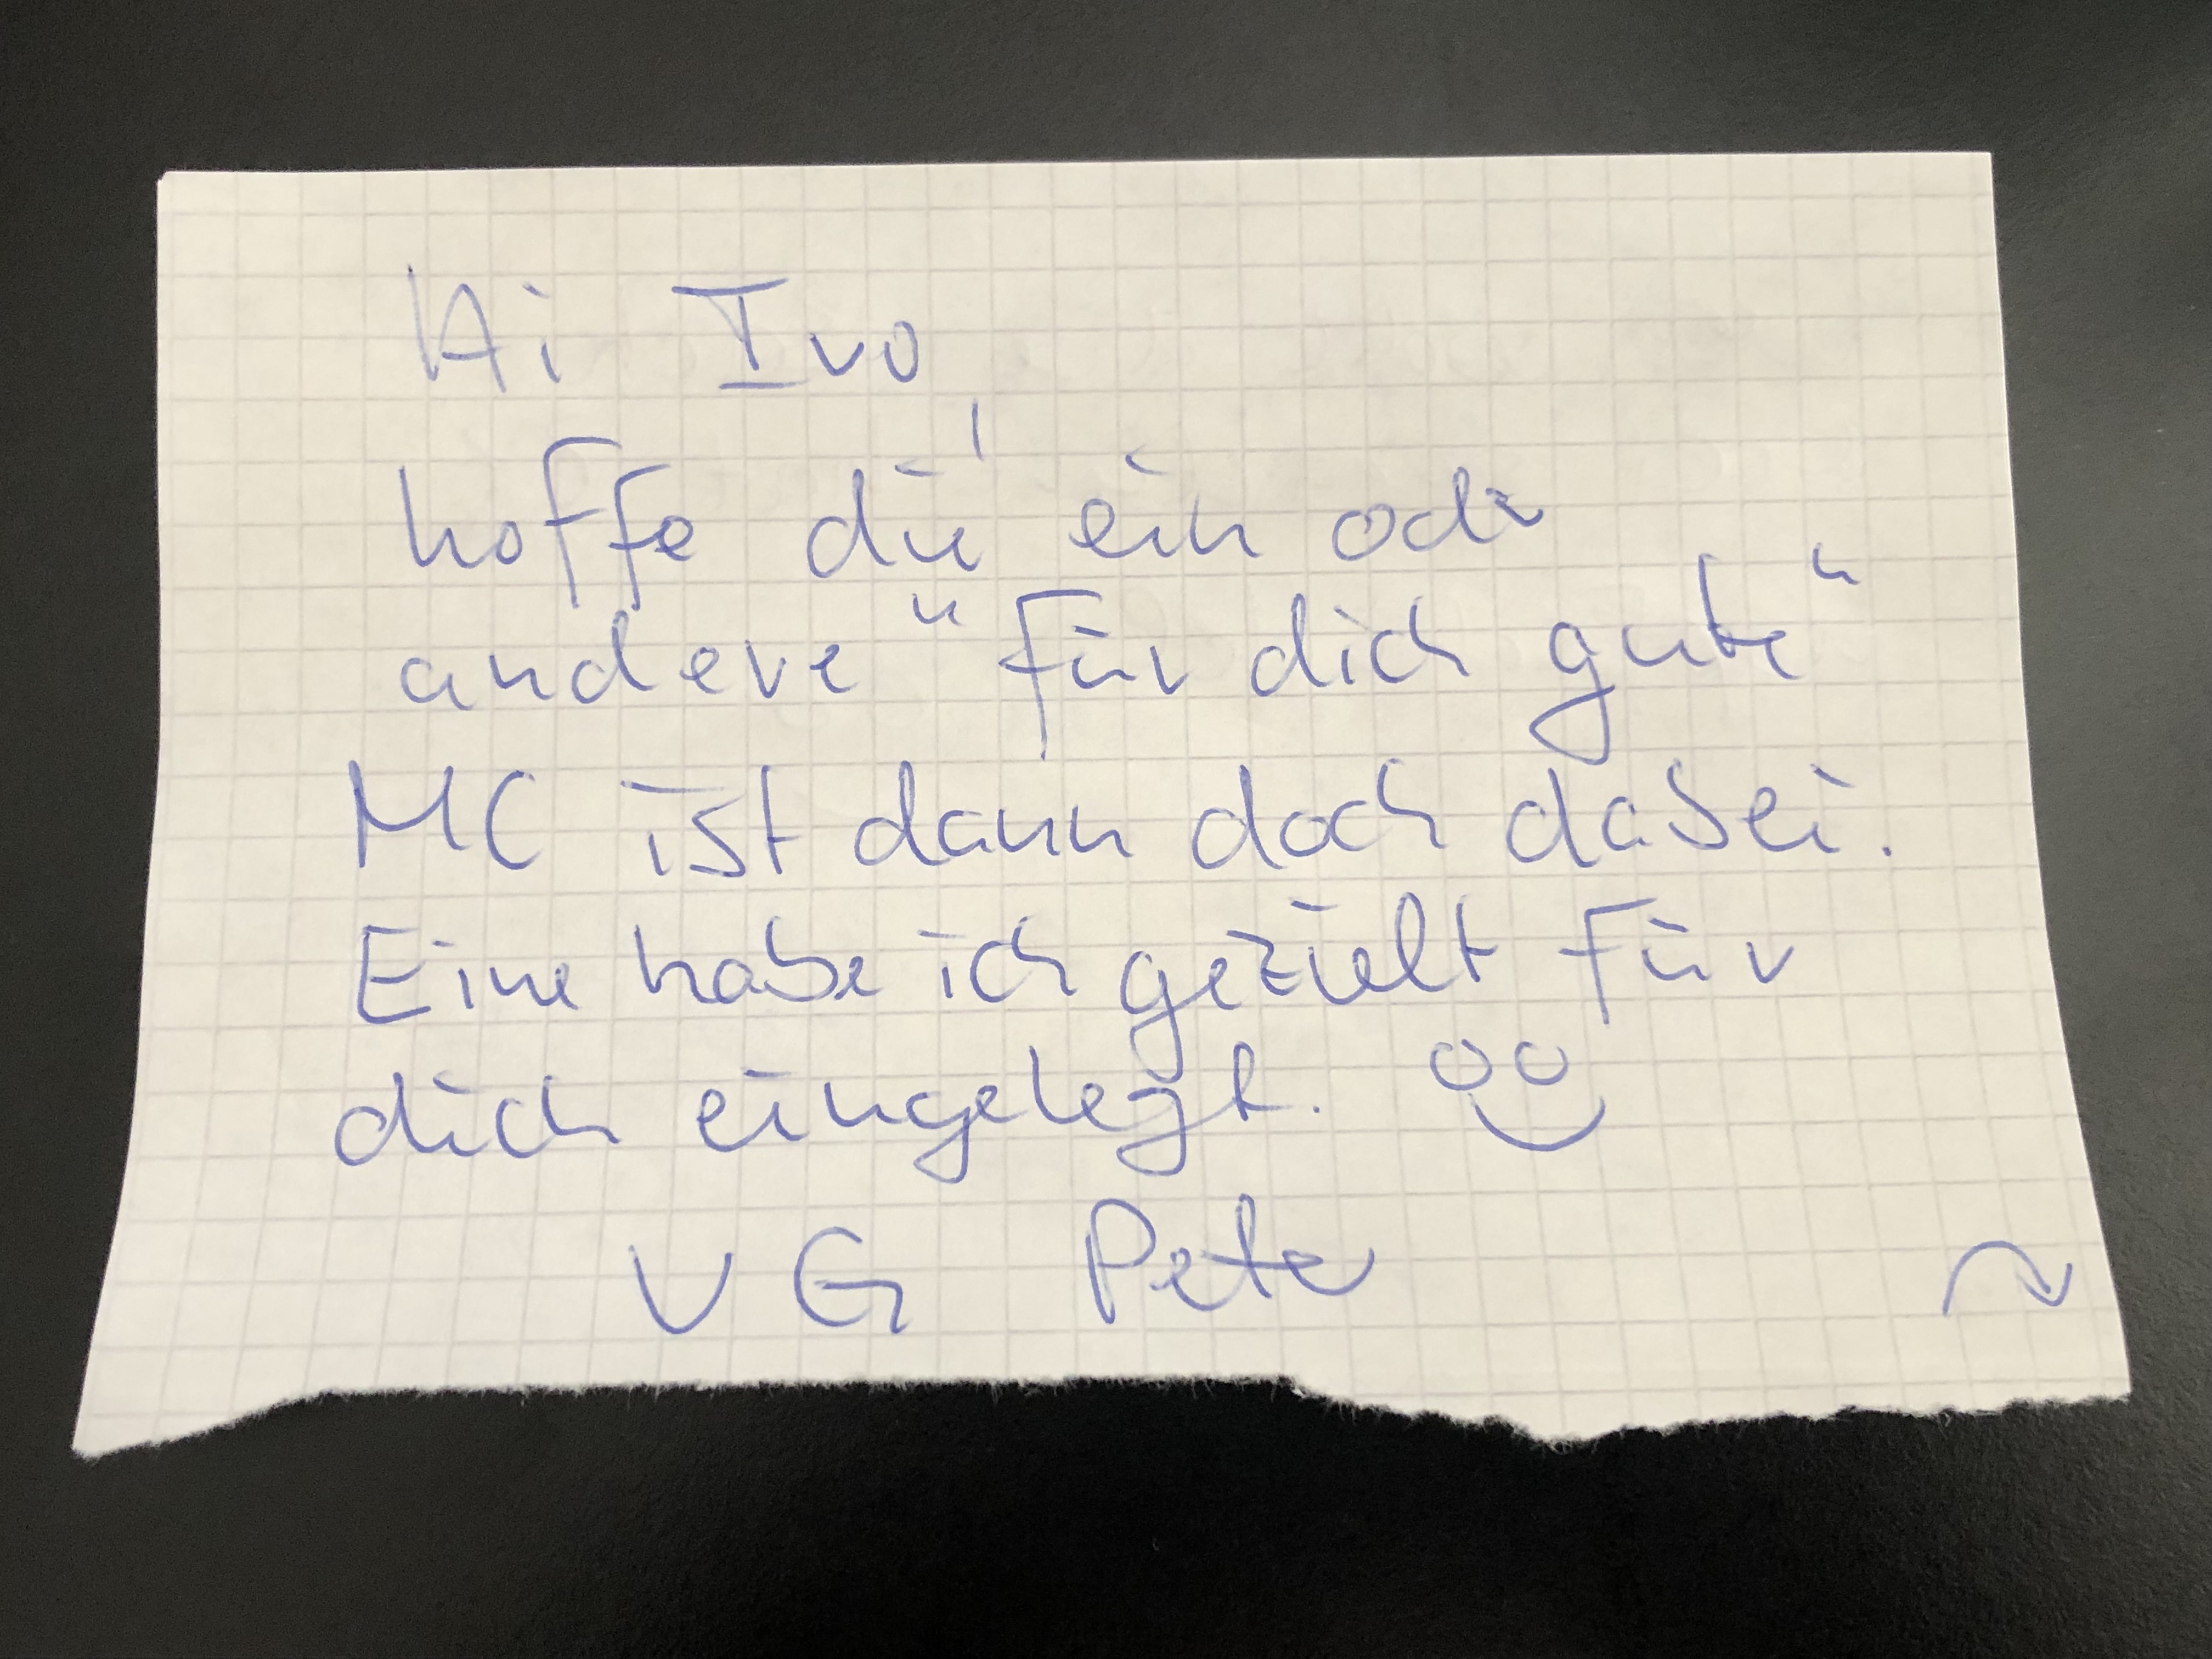 Hi Ivo,
hoffe die ein oder
andere "für dich gute"
MC ist dann doch dabei.
Eine habe ich gezielt für
dich eingelegt.
VG Peter